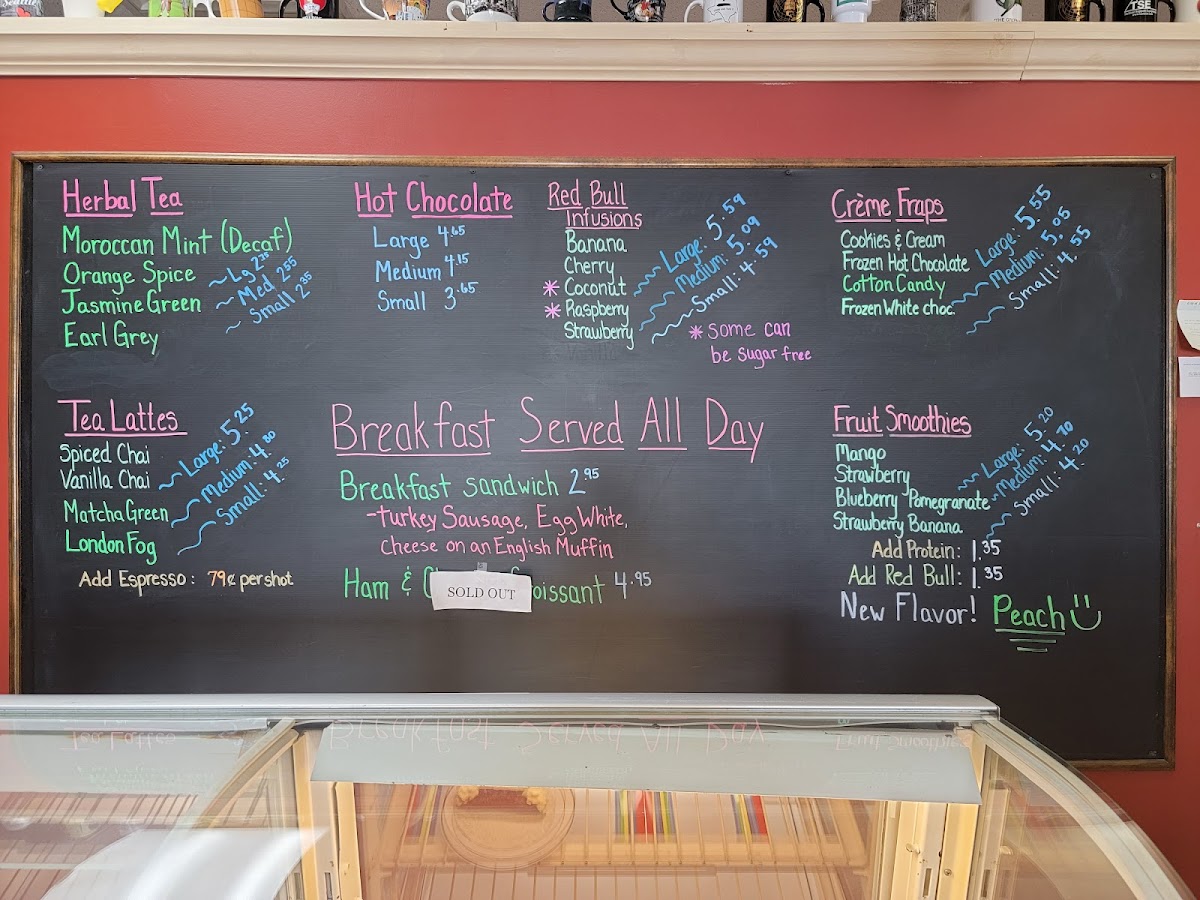 TSE
Herbal Tea
Moroccan Mint (Decaf)
Orange Spice
Jasmine Green
Earl Grey
Med 2.55
Small 2.35
Hot Chocolate
Large 4.65
Medium 4.15
Small 3.65
Red Bull
Infusions
Banana
Cherry
* Coconut
* Raspberry
Strawberry
Large: 5.59
Medium: 5.09
Small: 4.59
* some can
be sugar free
Crème Fraps
Cookies & Cream
Frozen Hot Chocolate
Cotton Candy
Frozen White choc.
Large: 5.55
Medium: 5.05
Small: 4.55
Tea Lattes
Spiced Chai
Vanilla Chai
Matcha Green
London Fog
Large: 5.25
Medium: 4.80
Small: 4.25
Add Espresso: 79¢ per shot
Breakfast Served All Day
Breakfast sandwich 2.95
-turkey Sausage, Egg White,
cheese on an English Muffin
Ham & oissant 4.95
SOLD OUT
Fruit Smoothies
Mango
Strawberry
Blueberry Pomegranate
Strawberry Banana
Large: 5.20
Medium: 4.70
Small: 4.20
Add Protein: 1.35
Add Red Bull: 1.35
New Flavor! Peach